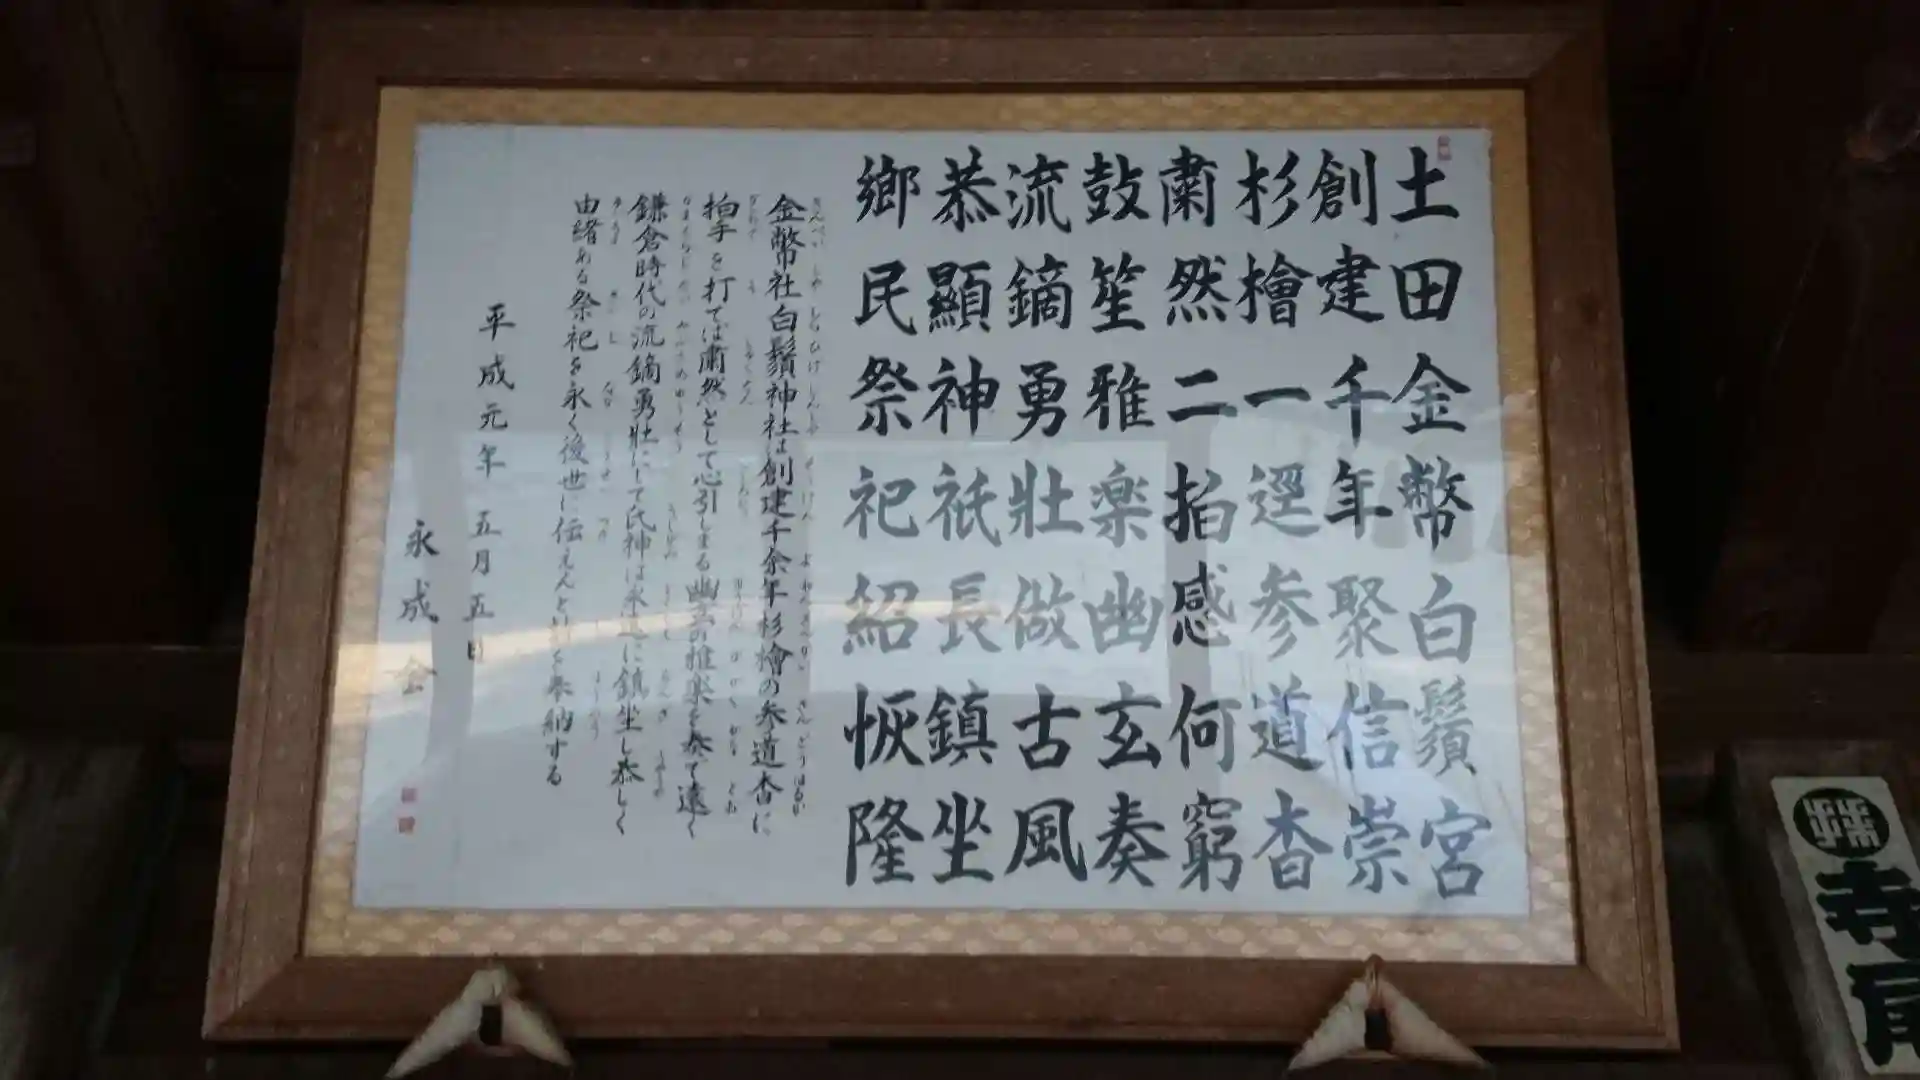 土田金幣白鬚宮
創建千年聚信崇
杉檜一逕参道杳
粛然二拍感何窮
鼓笙雅楽幽玄奏
流鏑勇壮倣古風
恭顯神祇長鎮坐
郷民祭祀紹恢隆
金幣社白鬚神社は創建千余年杉檜の参道杳に
拍手を打てば粛然として心引しまる幽玄の雅楽を奏で遠く
鎌倉時代の流鏑勇壮にして氏神は永遠に鎮坐し恭しく
由緒ある祭祀を永く後世に伝えんと
奉納する
平成元年 五月五日
永成
寺尾